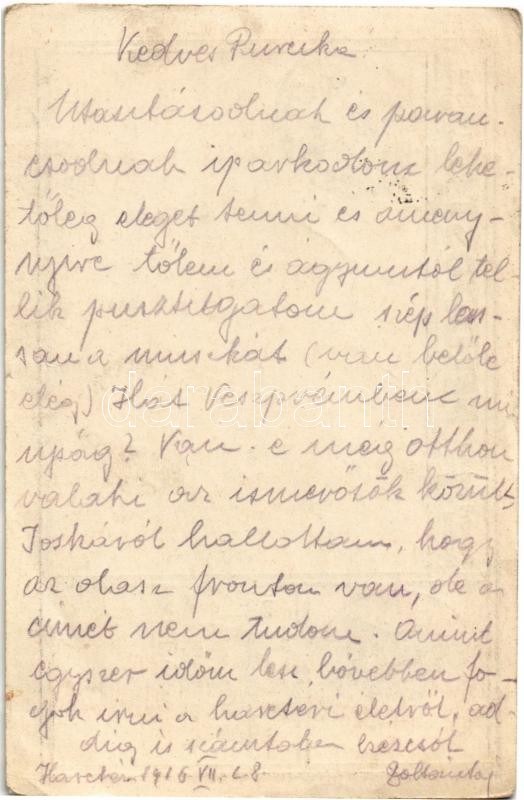 Kedves Puncika
Utasításodnak és paran-
csodnak iparkodom lehe-
tőleg eleget tenni és ameny-
nyire tőlem és ágyumtól tel-
lik pusztitgatom szép las-
san a muszkát (van belőle
elég) Hát Veszprémben mi
ujság? Van-e még otthon
valaki az ismerősök közül?
Joskáról hallottam, hogy
az olasz fronton van, de a
cimét nem tudom. Amint
egyszer időm lesz, bővebben fo-
gok irni a harctéri életről, ad-
dig is számtalan kezcsók
Harctér 1916 VII. 28
darabanth